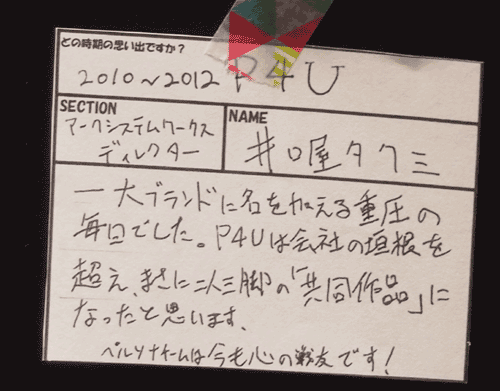 どの時期の思い出ですか？
2010～2012 P4U
SECTION
アークシステムワークス
ディレクター
NAME
井口屋タクミ
一大ブランドに名を加える重圧の
毎日でした。P4Uは会社の垣根を
超え、まさに二人三脚の「共同作品」に
なったと思います、
ペルソナチームは今も心の戦友です！